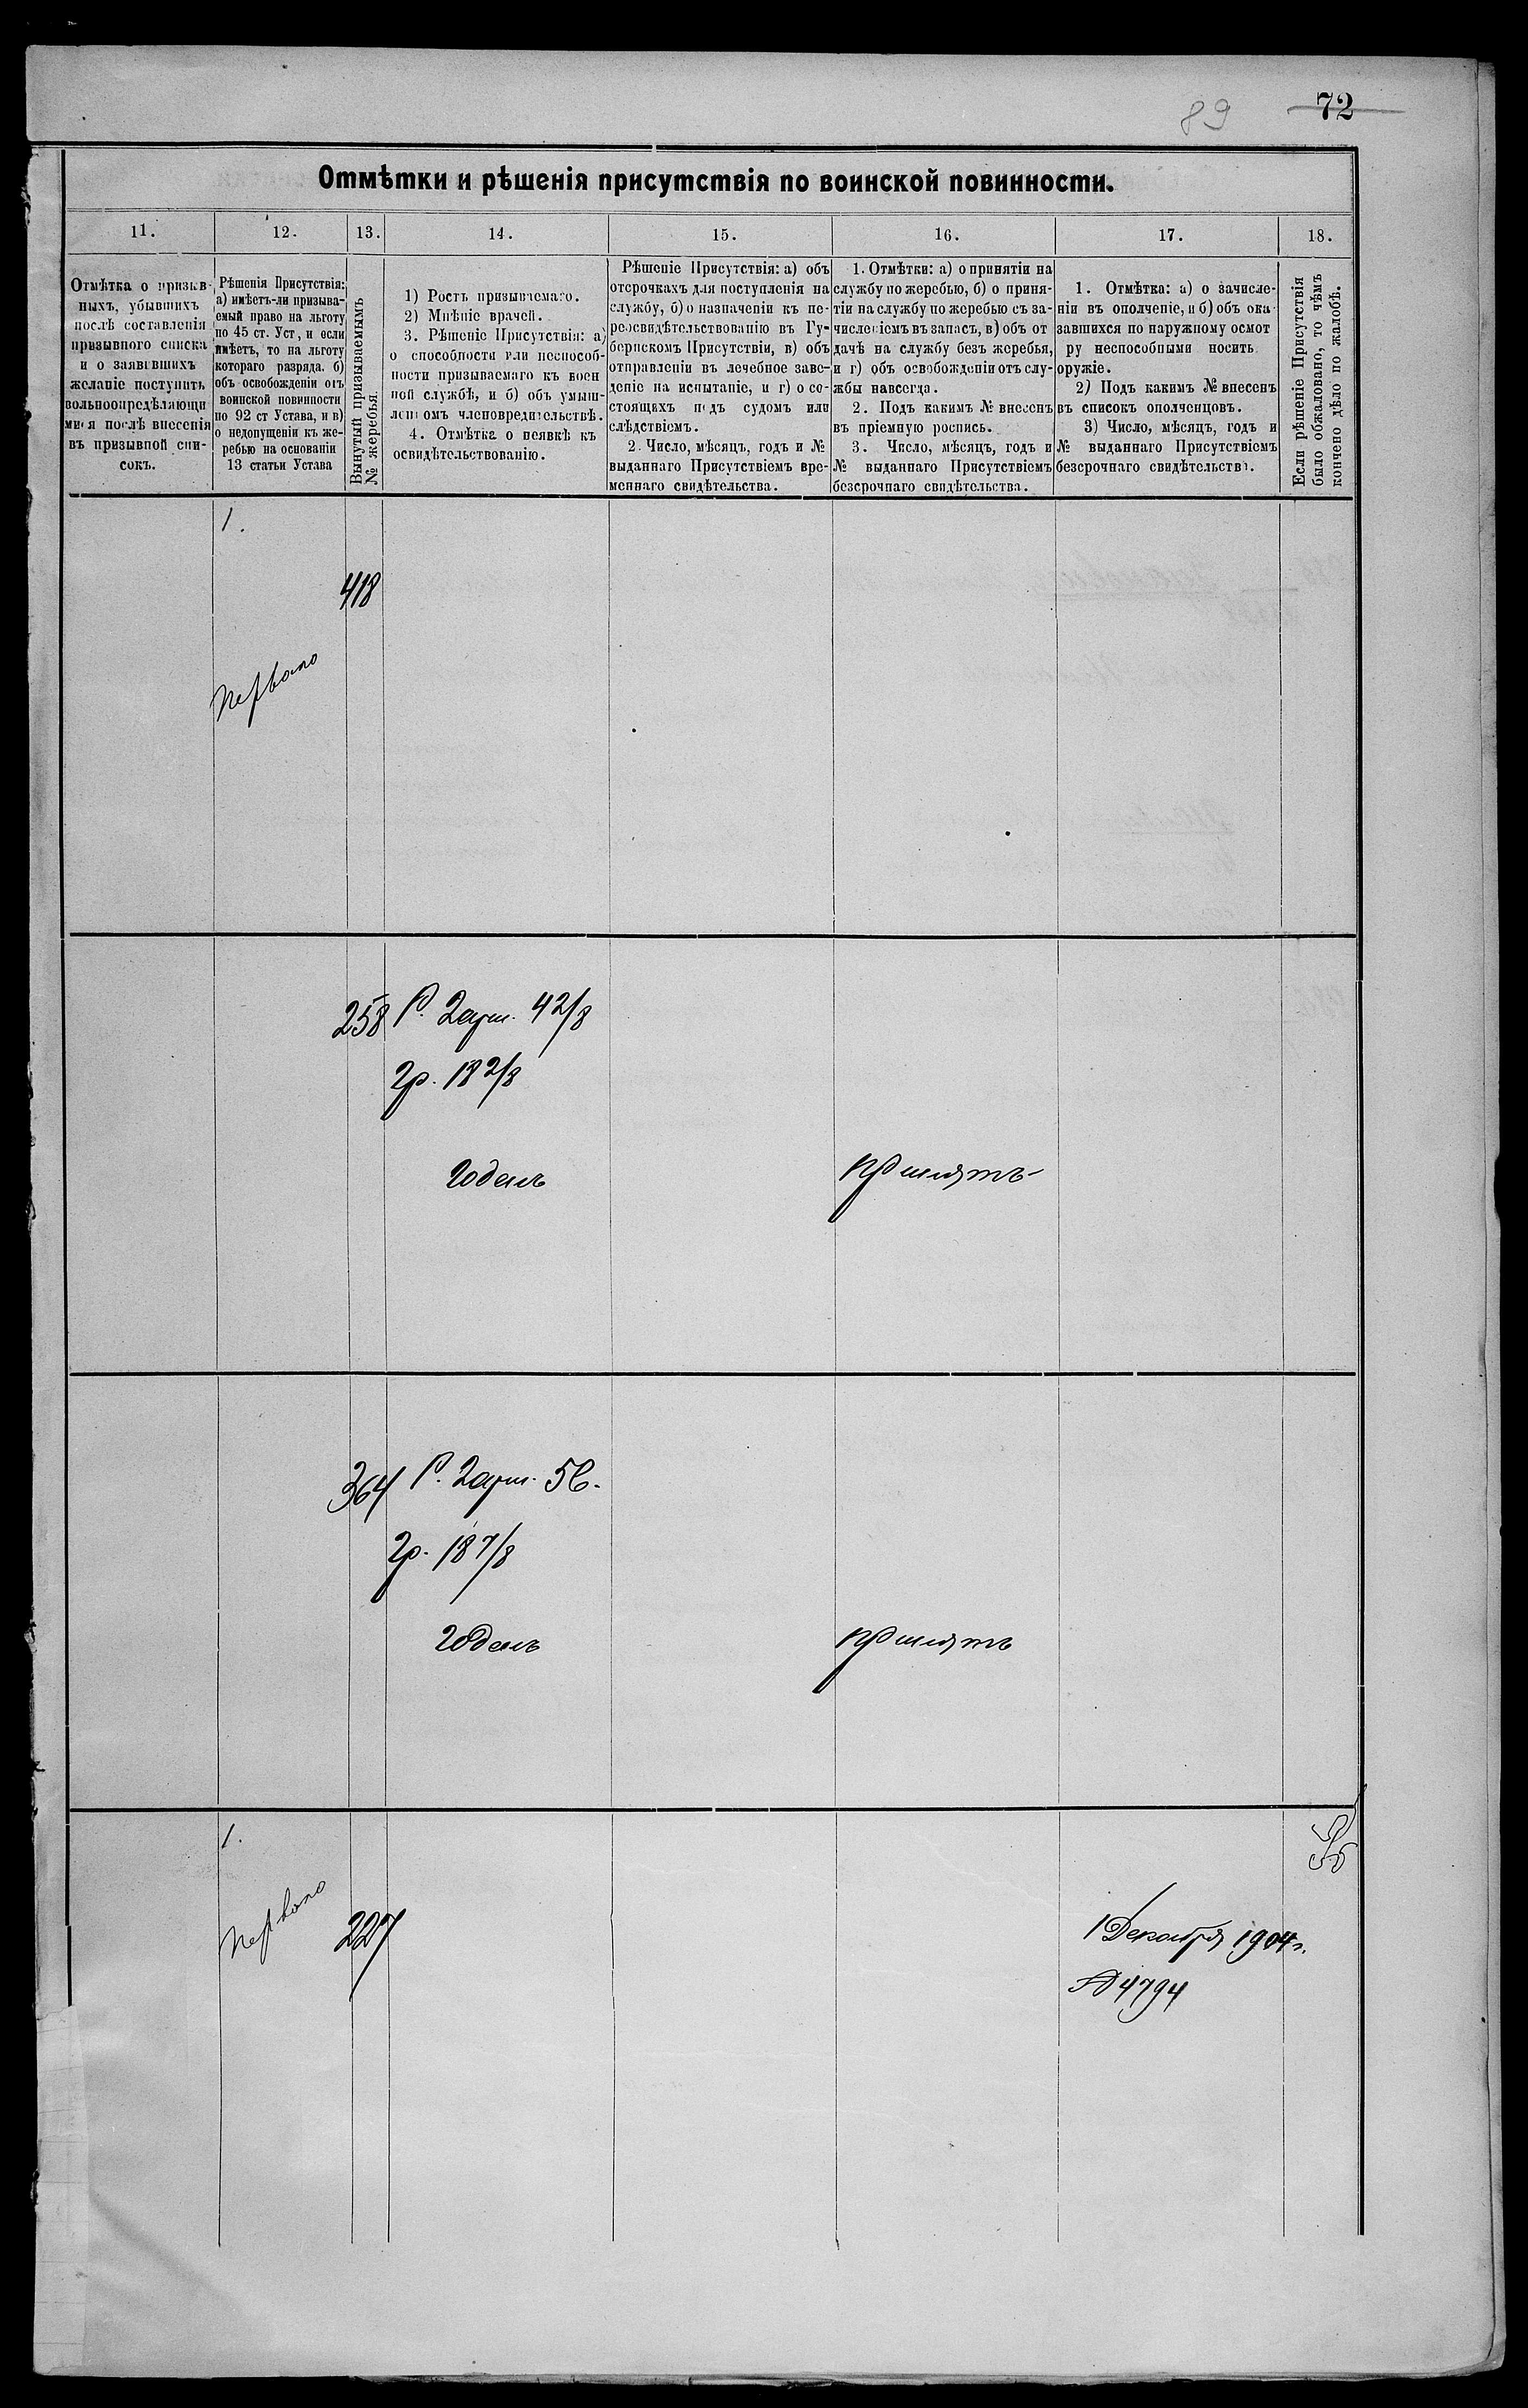 89 72
Отмѣтки и рѣшенія присутствія по воинской повинности.
11. 12. 13. 14. 15. 16. 17. 18.
Отмѣтка о призыв-
ныхъ, убывшихъ
послѣ составленія
призывного списка
и о заявившихъ
желаніе поступить
вольноопредѣляющи
мися послѣ внесенія
въ призывной спи-
сокъ.
Рѣшенія Присутствія:
а) имѣетъ-ли призыва-
емый право на льготу
по 45 ст. Уст, и если
имѣетъ, то на льготу
котораго разряда. б)
объ освобожденіи отъ
воинской повинности
по 92 ст Устава, и в)
о недопущеніи къ же-
ребью на основаніи
13 статьи Устава
Вынутый призываемымъ
№ жеребья.
1) Ростъ призываемаго.
2) Мнѣніе врачей.
3. Рѣшеніе Присутствія: а)
о способности или неспособ-
ности призываемаго къ воен
ной службѣ, и б) объ умыш-
леномъ членовредительствѣ.
4. Отмѣтка о неявкѣ къ
освидѣтельствованію.
Рѣшеніе Присутствія: а) объ
отсрочкахъ для поступленія на
службу, б) о назначеніи къ пе-
реосвидѣтельствованію въ Гу-
бернскомъ Присутствіи, в) объ
отправленіи въ лечебное заве-
деніе на испытаніе, и г) о со-
стоящихъ подъ судомъ или
слѣдствіемъ.
2. Число, мѣсяцъ, годъ и №
выданнаго Присутствіемъ вре-
меннаго свидѣтельства.
1. Отмѣтки: а) о принятіи на
службу по жеребью, б) о приня-
тіи на службу по жеребью съ за-
численіемъ въ запасъ, в) объ от
дачѣ на службу безъ жеребья,
и г) объ освобожденіи отъ слу-
жбы навсегда.
2. Подъ какимъ № внесенъ
въ пріемную роспись.
3. Число, мѣсяцъ, годъ и
№ выданнаго Присутствіемъ
безсрочнаго свидѣтельства.
1. Отмѣтка: а) о зачисле-
ніи въ ополченіе, и б) объ ока
завшихся по наружному осмот
ру неспособными носить
оружіе.
2) Подъ какимъ № внесенъ
въ списокъ ополченцовъ.
3) Число, мѣсяцъ, годъ и
№ выданнаго Присутствіемъ
безсрочнаго свидѣтельства.
Если рѣшеніе Присутствія
было обжаловано, то чѣмъ
кончено дѣло по жалобѣ.
1.
418
Перваго
258 Р. 2 арш. 4 2/8
Гр. 18 2/8
Годенъ принятъ
364 Р. 2 арш. 5 в.
Гр. 18 7/8
Годенъ принятъ
1.
Перваго 227
1 Декабря 1904 г.
№ 4794